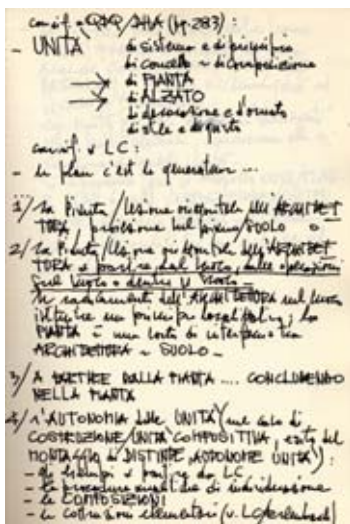 conf. a QDQ/ (pg. 283):
- UNITÀ di sistema e di principio
di concetto ~ di composizione
→ di PIANTA
→ di ALZATO
di decorazione e d'ornato
di stile e di gusto
conf. v LC:
- le plan c'est le générateur ...
1/ La Pianta/Sezione orizzontale dell'ARCHITET
TURA, proiezione sul piano/SUOLO
2/ La Pianta/Sezione orizzontale dell'ARCHITET
TURA a partire dal suolo, dalle operazioni
sul suolo e dentro il suolo.
dell'ARCHITETTURA nel suolo
istituisce un principio ; la
PIANTA è una sorta di
ARCHITETTURA ~ SUOLO -
3/ A PARTIRE DALLA PIANTA .... CONCLUDENDO
NELLA PIANTA
4/ L'AUTONOMIA delle UNITÀ (nel caso di
COSTRUZIONE/UNITÀ COMPOSITIVA, esito del
MONTAGGIO di DISTINTE, AUTONOME UNITÀ):
- gli esempi a partire da LC
- le procedure di individuazione
- le COMPOSIZIONI
- le costruzioni elementari (v. LC/